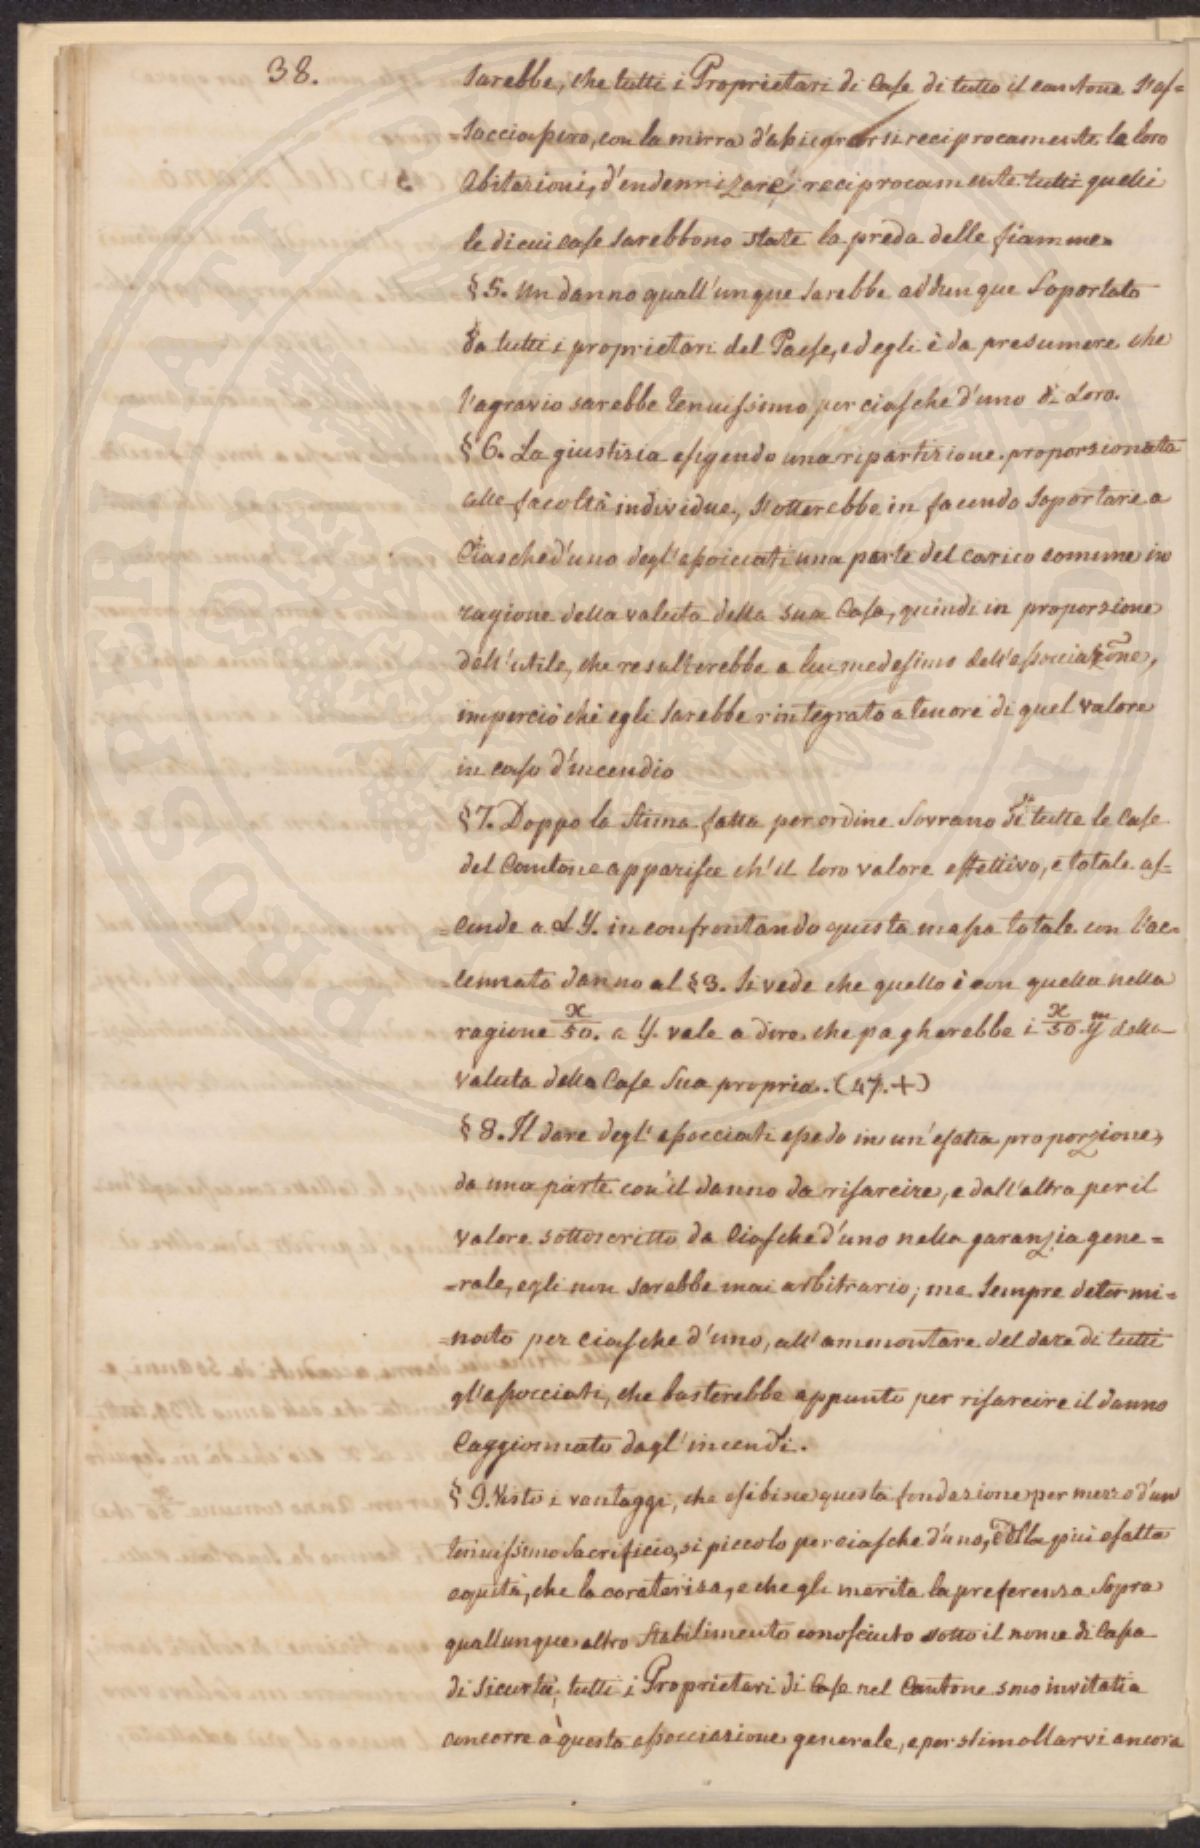 38.
sarebbe, che tutti i Proprietari di Case di tutto il cantone s'as=
sociassero, con la mirra d'assicurarsi reciprocamente le loro
abitazioni, d'endennizare reciprocamente tutti quelli
le di cui case sarebbono state la preda delle fiamme.
§ 5. Un danno quall'unque sarebbe addunque soportato
da tutti i proprietari del Paese, ed egli è da presumere che
l'agravio sarebbe tenuissimo per ciasche d'uno di Loro.
§ 6. La giustizia esigendo una ripartizione proporzionata
alle facoltà individue, s'otterebbe in facendo soportare a
Ciasched'uno degl'assoicciati una parte del carico comune in
ragione della valuta della sua Casa, quindi in proporzione
dell'utile, che resulterebbe a lui medesimo dell'associazione,
imperciò chè egli sarebbe rintegrato a tenore di quel valore
in caso d'incendio
§ 7. Doppo la stima fatta per ordine Sovrano di tutte le Case
del Cantone apparisce ch'il loro valore effettivo, e totale as=
=cende a L Y. in confrontando questa massa totale con l'ac=
=cennato danno al § 3. si vede che quello è con quella nella
ragione x/50. a Y. vale a dire, che pagherebbe i x/50 y m della
valuta della Case sua propria. (47.+)
§ 8. Il dare degl'associati essedo in un'esatta proporzione,
da una parte con il danno da risarcire, e dall'altra per il
valore sottoscritto da Ciasche d'uno nella garanzia gene=
=rale, egli non sarebbe mai arbitrario; ma sempre determi=
=nato per ciasche d'uno, all'ammontare del dare di tutti
gl'associati, che basterebbe appunto per risarcire il danno
Caggionnato dagl'incendi.
§ 9. Visto i vantaggi, che esibisce questa fondazione per mezzo d'un
tenuissimo sacrificio, si piccolo per ciasche d'uno, della piu esatta
equità, che la caraterisa, e che gli merita la preferenza sopra
quallunque altro stabilimento conosciuto sotto il nome di Cassa
di sicurtà; tutti i Proprietari di Case nel Cantone sono invitati a
concorre à questa associazione generale, e per stimollarvi ancora
PRIVATI PROPRIETARI